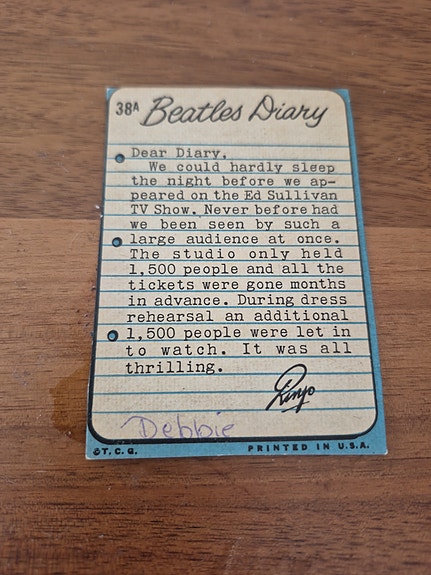 38A Beatles Diary
Dear Diary,
We could hardly sleep
the night before we ap-
peared on the Ed Sullivan
TV Show. Never before had
we been seen by such a
large audience at once.
The studio only held
1,500 people and all the
tickets were gone months
in advance. During dress
rehearsal an additional
1,500 people were let in
to watch. It was all
thrilling.
Ringo
Debbie
©T.C.G. PRINTED IN U.S.A.